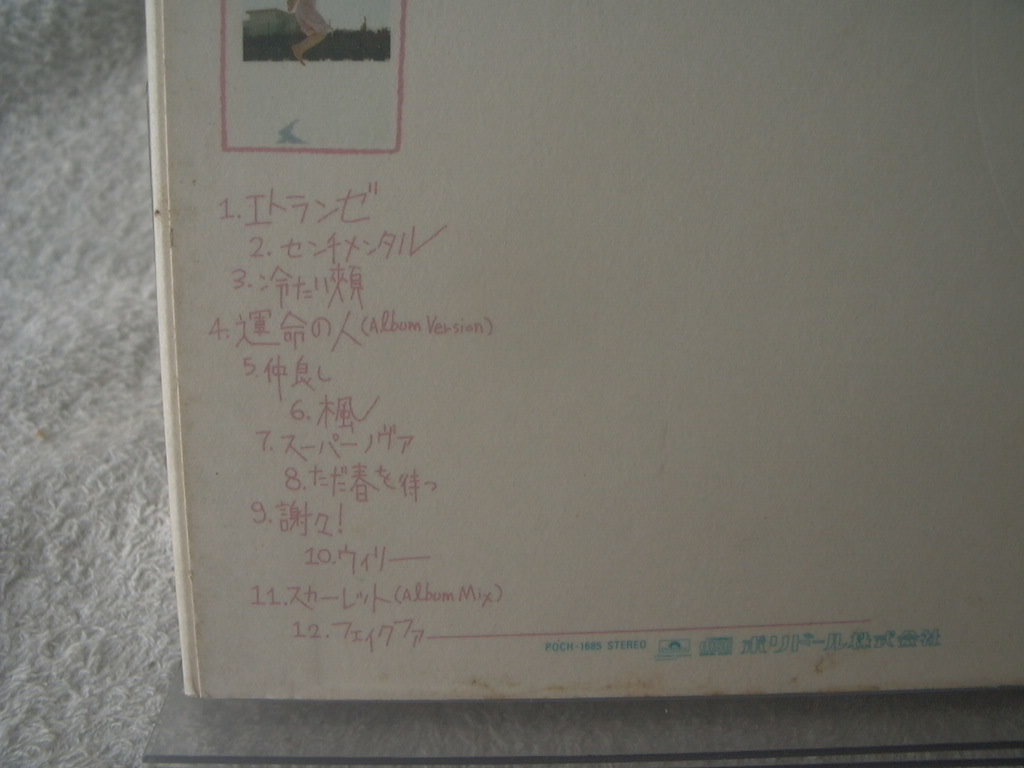 1.エトランゼ
2.センチメンタル
3.冷たい頬
4.運命の人(Album Version)
5.仲良し
6.楓
7.スーパーノヴァ
8.ただ春を待つ
9.謝々!
10.ウィリー
11.スカーレット(Album Mix)
12.フェイクファー
POCH-1685 STEREO ポリドール株式会社